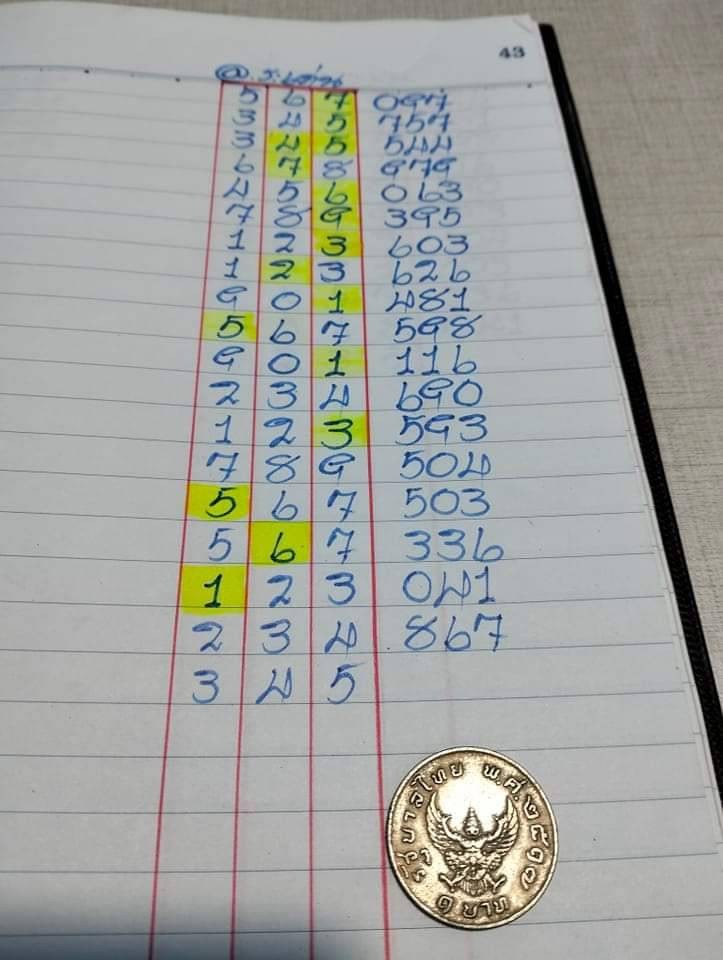 43
5 6 7 097
3 4 5 757
3 4 5 544
6 7 8 979
4 5 6 063
7 8 9 395
1 2 3 603
1 2 3 626
9 0 1 481
5 6 7 598
9 0 1 116
2 3 4 690
1 2 3 593
7 8 9 504
5 6 7 503
5 6 7 336
1 2 3 041
2 3 4 867
3 4 5
รัฐบาลไทย พ.ศ.๒๕๑๗
๑ บาท